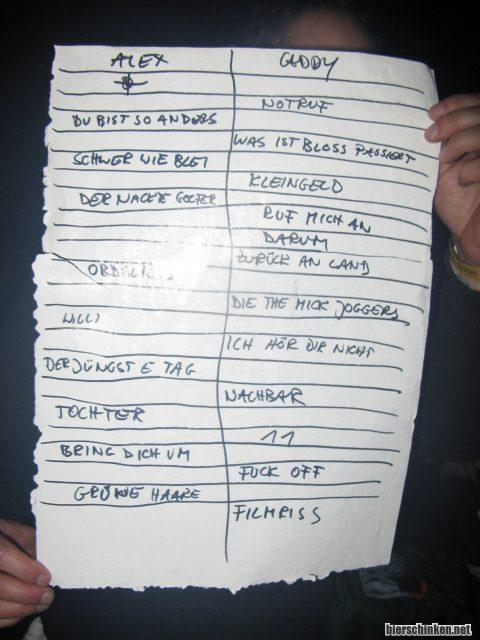 ALEX GUDDY
NOTRUF
DU BIST SO ANDERS
WAS IST BLOSS PASSIERT
SCHWER WIE BLEI
KLEINGELD
DER NACKTE GOLFER
RUF MICH AN
DARUM
ZURÜCK AN LAND
DIE THE MICK JOGGERS
WILLI
ICH HÖR DIR NICHT
DER JÜNGSTE TAG
NACHBAR
TOCHTER
11
BRING DICH UM
FUCK OFF
GRÜNE HAARE
FILMRISS
bierschinken.net